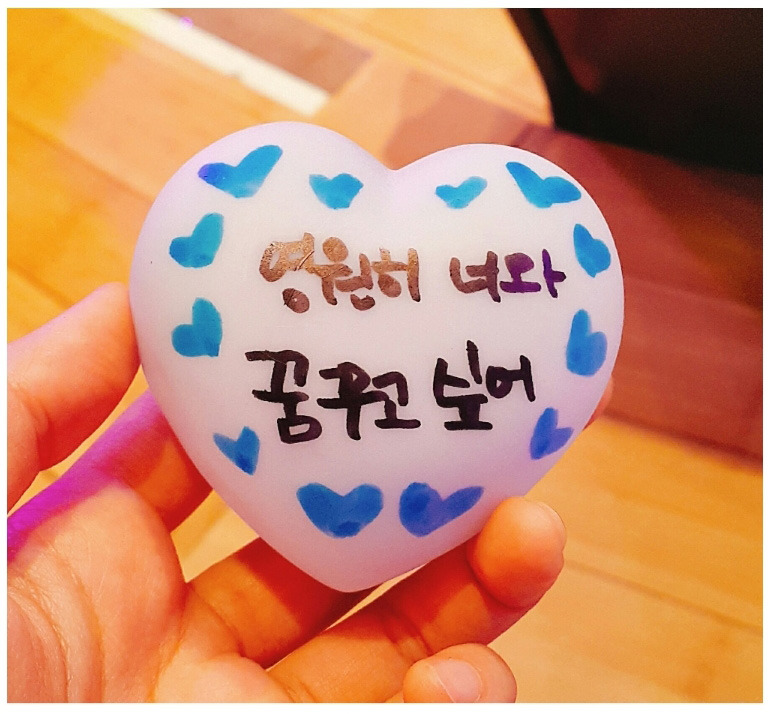 영원히 너와
꿈꾸고 싶어